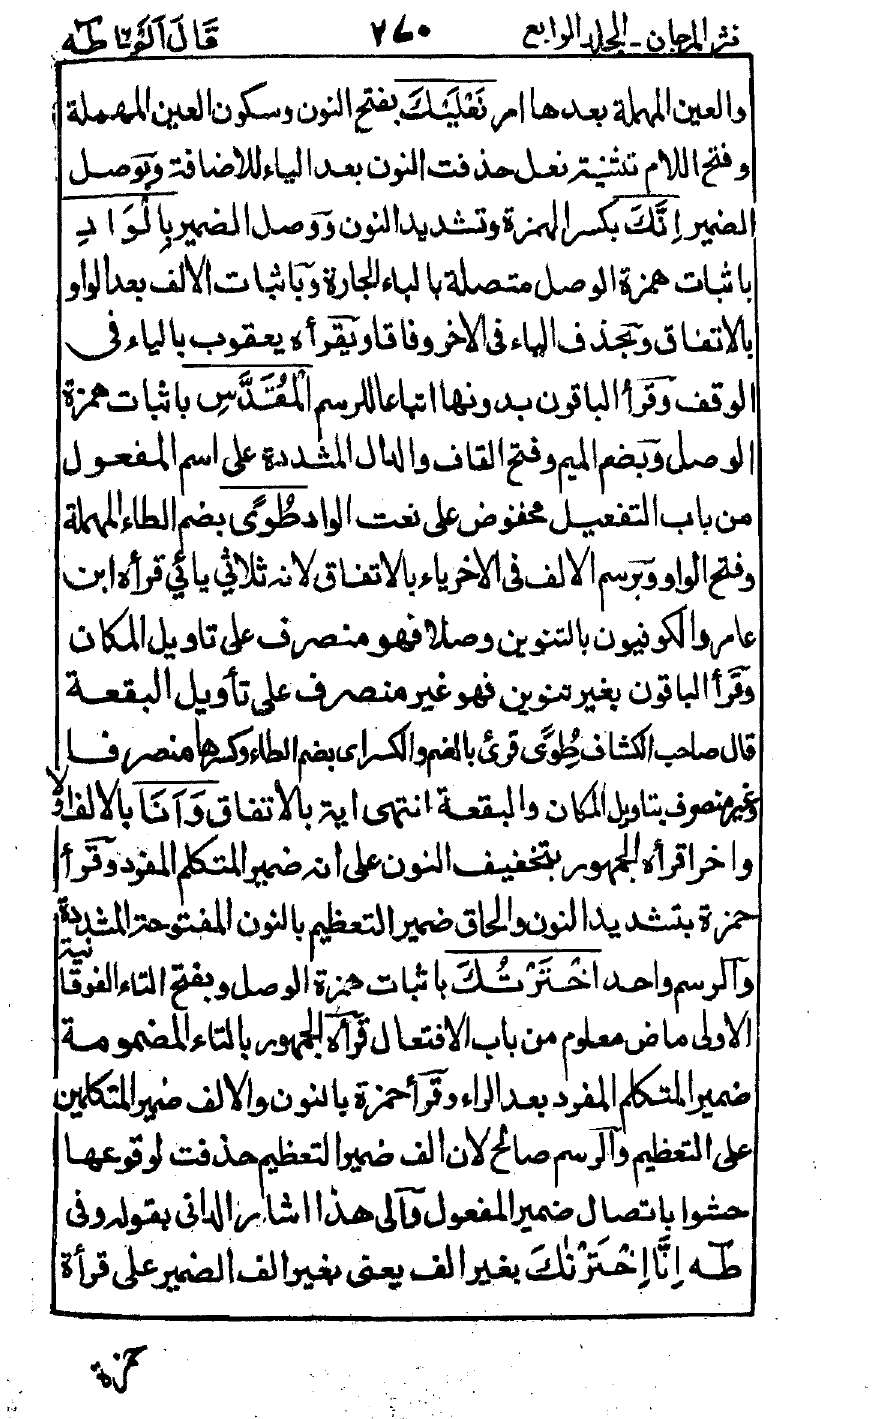 نثر المرجان - المجلد الرابع ٢٤٠ قَالَ اَلَمْ طٰهٰ
والعين المهملة بعدها امر نَعْلَيْكَ بفتح النون وسكون العين المهملة
وفتح اللام تثنية نعل حذفت النون بعد الياء للاضافة ويوصل
الضمير اِنَّكَ بكسر الهمزة وتشديد النون ووصل الضمير بِالْوَادِ
باثبات همزة الوصل متصلة بالباء الجارة وباثبات الالف بعد الواو
بالاتفاق وبحذف الياء فى الاخر وفاقا ويقرأه يعقوب بالياء فى
الوقف وقرأ الباقون بدونها اتباعا للرسم الْمُقَدَّسِ باثبات همزة
الوصل وبضم الميم وفتح القاف والدال المشددة على اسم المفعول
من باب التفعيل مخفوض على نعت الواد طُوًى بضم الطاء المهملة
وفتح الواو وبرسم الالف فى الاخر ياء بالاتفاق لانه ثلاثي يائي قرأه ابن
عامر والكوفيون بالتنوين وصلا فهو منصرف على تاويل المكان
وقرأ الباقون بغير تنوين فهو غير منصرف على تأويل البقعة
قال صاحب الكشاف طُِوًى قرئ بالضم والكسر اى بضم الطاء وكسرها منصرفا
وغير منصرف بتاويل المكان والبقعة انتهى اية بالاتفاق وَاَنَا بالالف اولا
واخرا قرأه الجمهور بتخفيف النون على انه ضمير المتكلم المفرد وقرأ
حمزة بتشديد النون والحاق ضمير التعظيم بالنون المفتوحة المشددة
والرسم واحد اخْتَرْتُكَ باثبات همزة الوصل وبفتح التاء الفوقانية
الاولى ماض معلوم من باب الافتعال قرأه الجمهور بالتاء المضمومة
ضمير المتكلم المفرد بعد الراء وقرأ حمزة بالنون والالف ضمير المتكلمين
على التعظيم والرسم صالح لان الف ضمير التعظيم حذفت لوقوعها
حشوا باتصال ضمير المفعول والى هذا اشار الدانى بقوله وفى
طٰهٰ اِنَّا اِخْتَرْنٰكَ بغير الف يعنى بغير الف الضمير على قرأة
حمزة